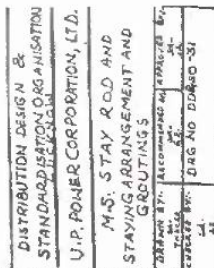 DISTRIBUTION DESIGN &
STANDARDISATION ORGANISATION
LUCKNOW
U.P. POWER CORPORATION, LTD.
M.S. STAY ROD AND
STAYING ARRANGEMENT AND
GROUTINGS
DRAWN BY:- RECOMMENDED BY, APPROVED BY,
Sd-
CHECKED BY:- DRG NO DDRSO-S1
Sd-